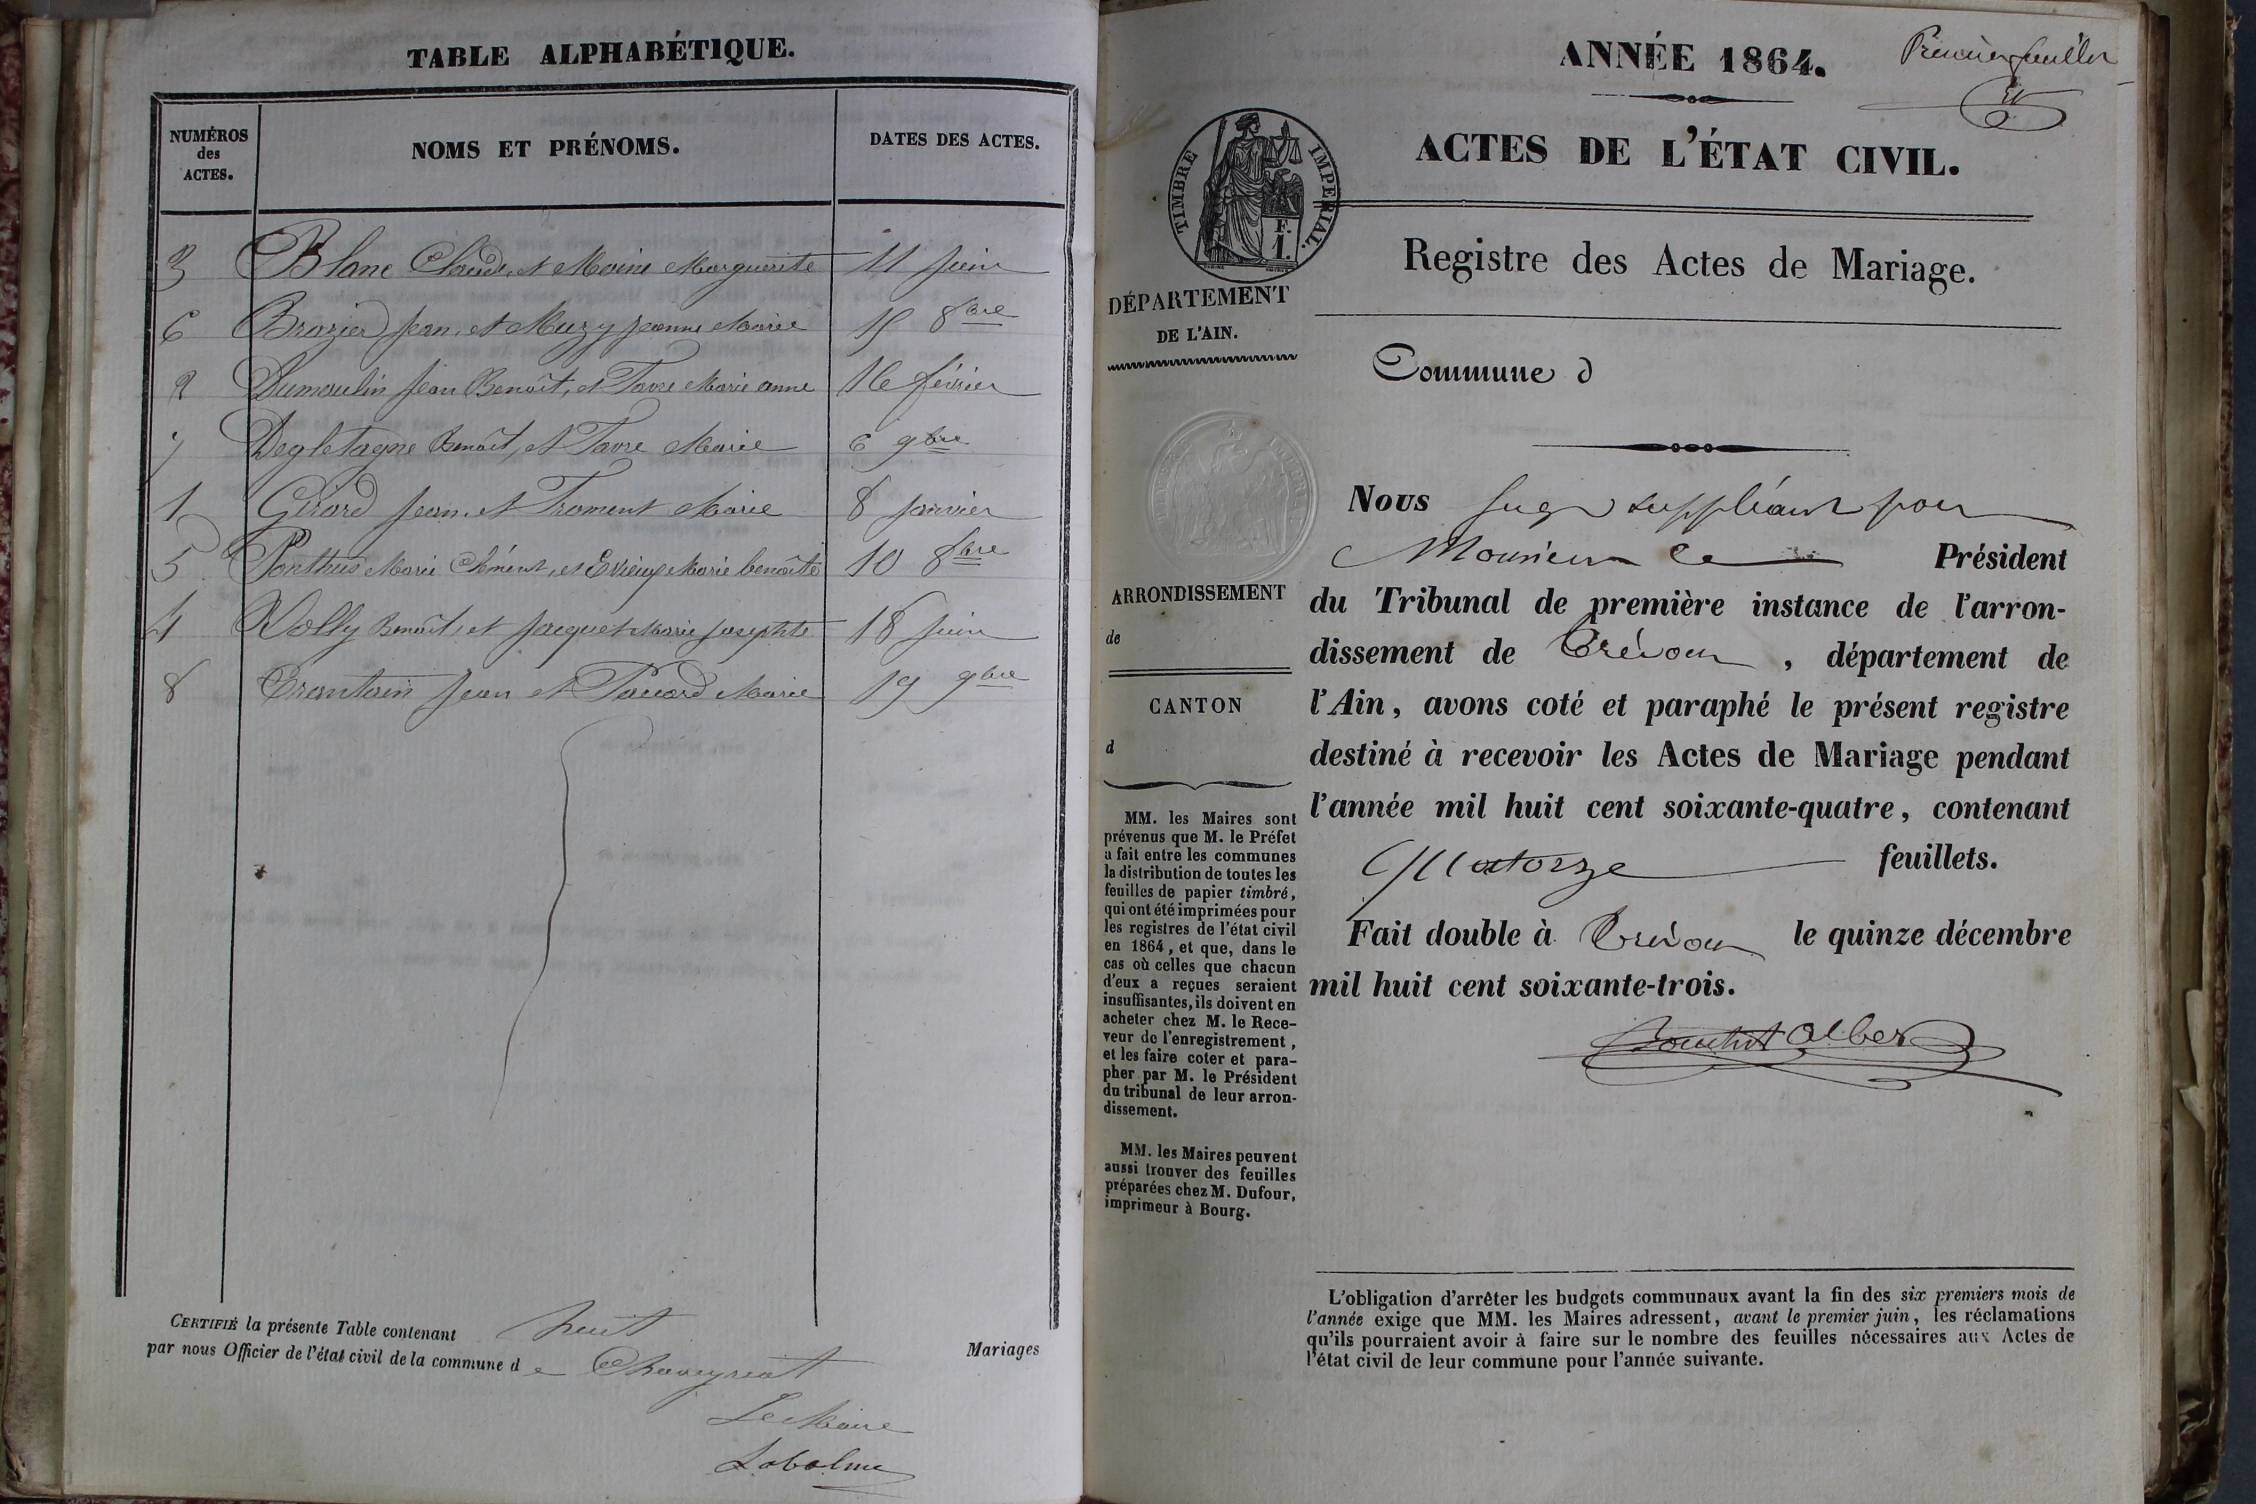 TABLE ALPHABÉTIQUE.
NUMÉROS des ACTES.
NOMS ET PRÉNOMS.
DATES DES ACTES.
3 Blanc Claude, et Moine Marguerite 11 Juin
6 Brazier Jean, et Muzy Jeanne Marie 15 8bre
2 Dumoulin Jean Benoît, et Favre Marie anne 16 février
7 Degletagne Benoît, et Favre Marie 6 9bre
1 Girard Jean, et Froment Marie 8 Janvier
5 Ponthus Marie Clément, et Evieux Marie benoîte 10 8bre
4 Volly Benoît, et Jacquet Marie Josephte 18 Juin
8 Crantain Jean et Pacard Marie 19 9bre
CERTIFIÉ la présente Table contenant huit Mariages
par nous Officier de l'état civil de la commune d e Chaveyriat
Le Maire
Labalme
ANNÉE 1864.
Premier feuillet
ACTES DE L'ÉTAT CIVIL.
TIMBRE IMPÉRIAL.
F.
1.
Registre des Actes de Mariage.
DÉPARTEMENT
DE L'AIN.
Commune d
ARRONDISSEMENT
de
CANTON
d
MM. les Maires sont
prévenus que M. le Préfet
a fait entre les communes
la distribution de toutes les
feuilles de papier timbré,
qui ont été imprimées pour
les registres de l'état civil
en 1864, et que, dans le
cas où celles que chacun
d'eux a reçues seraient
insuffisantes, ils doivent en
acheter chez M. le Rece-
veur de l'enregistrement,
et les faire coter et para-
pher par M. le Président
du tribunal de leur arron-
dissement.
MM. les Maires peuvent
aussi trouver des feuilles
préparées chez M. Dufour,
imprimeur à Bourg.
Nous Juge suppléant pour
Monsieur le Président
du Tribunal de première instance de l'arron-
dissement de Trévoux, département de
l'Ain, avons coté et paraphé le présent registre
destiné à recevoir les Actes de Mariage pendant
l'année mil huit cent soixante-quatre, contenant
quatorze feuillets.
Fait double à Trévoux le quinze décembre
mil huit cent soixante-trois.
L'obligation d'arrêter les budgets communaux avant la fin des six premiers mois de
l'année exige que MM. les Maires adressent, avant le premier juin, les réclamations
qu'ils pourraient avoir à faire sur le nombre des feuilles nécessaires aux Actes de
l'état civil de leur commune pour l'année suivante.